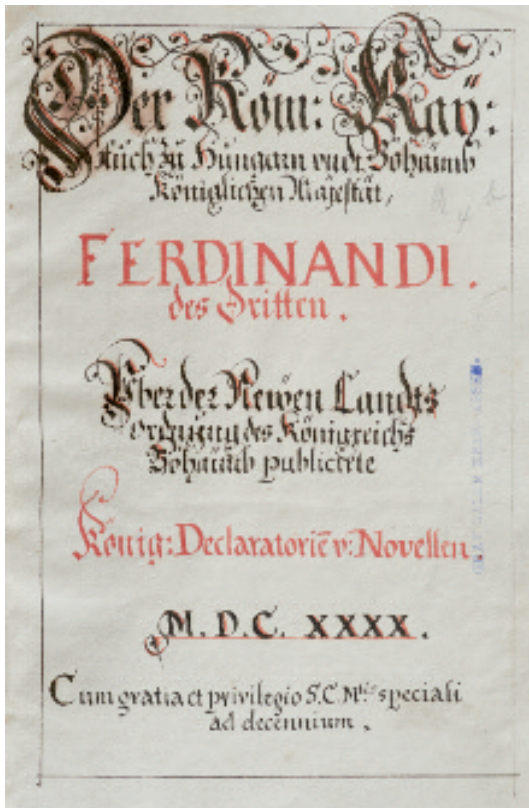 Der Röm: Kay:
Auch zu Hungarn undt Böhaimb
Königlichen Majestät,
FERDINANDI.
des Dritten.
Über der Newen Landts
ordnung des Königreichs
Böhaimb publicirte
König: Declaratoriē v: Novellen.
M. D. C. XXXX.
Cum gratia et privilegio S. C. Mtis speciali
ad decennium.